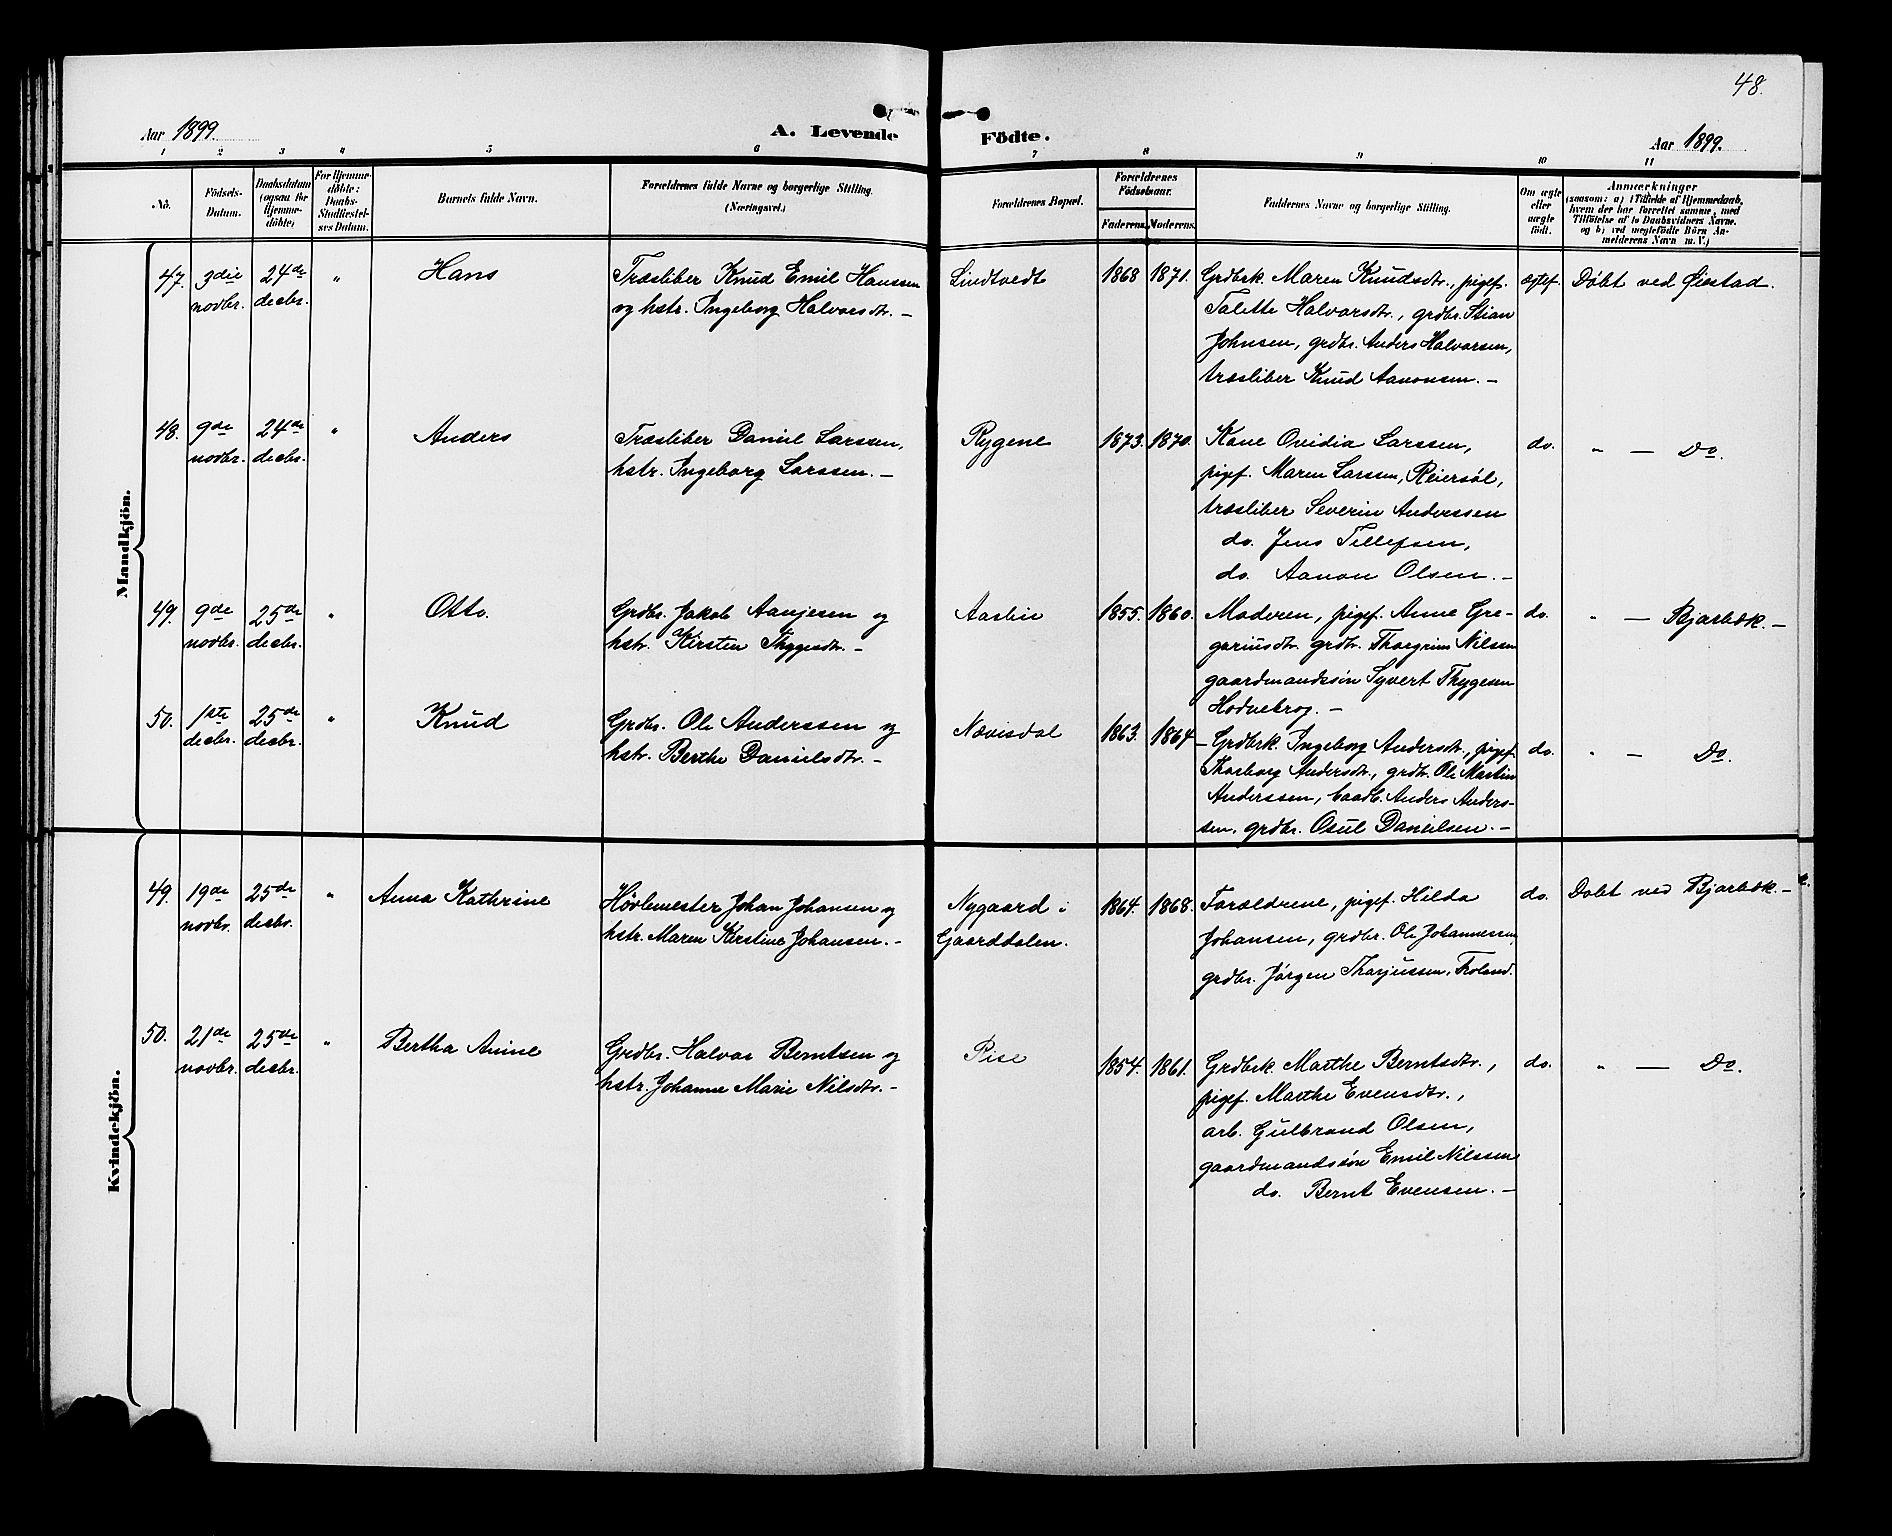 48.
Aar 1899.
A. Levende Födte.
Aar 1899.
1 2 3 4 5 6 7 8 9 10 11
No.
Födsels-
Datum.
Daabsdatum
(ogsaa for
Hjemme-
döbte)
For Hjemme-
döbte:
Daabs-
Stadfæstel-
ses Datum.
Barnets fulde Navn.
Forældrenes fulde Navne og borgerlige Stilling.
(Næringsvei.)
Forældrenes Bopæl.
Forældrenes
Födselsaar.
Faderens. Moderens.
Faddernes Navne og borgerlige Stilling.
Om ægte
eller
uægte
födt.
Anmærkninger
(saasom: a) i Tilfælde af Hjemmedaab,
hvem der har forrettet samme, med
Tilföielse af to Daabsvidners Navne,
og b) ved uægtefödte Börn An-
melderens Navn m. V.)
Mandkjön.
47. 3die novbr. 24de decbr. " Hans
Træsliber Knud Emil Hanssen
og hstr. Ingeborg Halvorsdtr. –
Lindtvedt 1868 1871.
Grdbrk. Maren Knudsdtr., pigef.
Talette Halvorsdtr., grdbr. Stian
Johnsen, grdbr. Anders Halvorsen,
træsliber Knud Aanonsen. –
ægtef. Döbt ved Øiestad.
48. 9de novbr. 24de decbr. " Anders
Træsliber Daniel Larssen,
hstr. Ingeborg Larssen. –
Rygene 1873. 1870.
Kone Ovidia Larssen,
pigef. Maren Larssen, Reiersöl,
træsliber Severin Anderssen
do. Jens Tellefsen,
do. Aanon Olsen. –
do. " — Do.
49. 9de novbr. 25de decbr. " Otto.
Grdbr. Jakob Aanjesen og
hstr. Kirsten Thygesdtr. –
Aasbie 1855. 1860.
Moderen, pigef. Anne Gre-
gariusdtr. grdbr. Thorgrim Nilsen
gaardmandssön Syvert Thygesen
Hodnebrog. –
do. " — Bjorbæk. –
50. 1ste decbr. 25de decbr. " Knud
Grdbr. Ole Anderssen og
hstr. Berthe Danielsdtr. –
Nævisdal 1863. 1864.
– Grdbrk. Ingeborg Andersdtr., pigef.
Thorborg Andersdtr., grdbr. Ole Martin
Anderssen, baadb. Anders Anders-
sen, grdbr. Osul Danielsen. –
do. " — Do.
Kvindekjön.
49. 19de novbr. 25de decbr. " Anna Kathrine
Hövlemester Johan Johansen og
hstr. Maren Kirstine Johansen. –
Nygaard i
Gaarddalen.
1864. 1868.
Forældrene, pigef. Hilda
Johansen, grdbr. Ole Johannessen,
grdbr. Jörgen Thorjussen, Froland.
do. Döbt ved Bjorbæk. –
50. 21de novbr. 25de decbr. " Bertha Amine
Grdbr. Halvor Berntsen og
hstr. Johanne Marie Nilsdtr. –
Rise 1854. 1861.
Grdbrk. Marthe Berntsdtr.,
pigef. Marthe Evensdtr.,
arb. Gulbrand Olsen,
gaardmandssön Emil Nilssen
do. Bernt Evensen. –
do. " — Do.